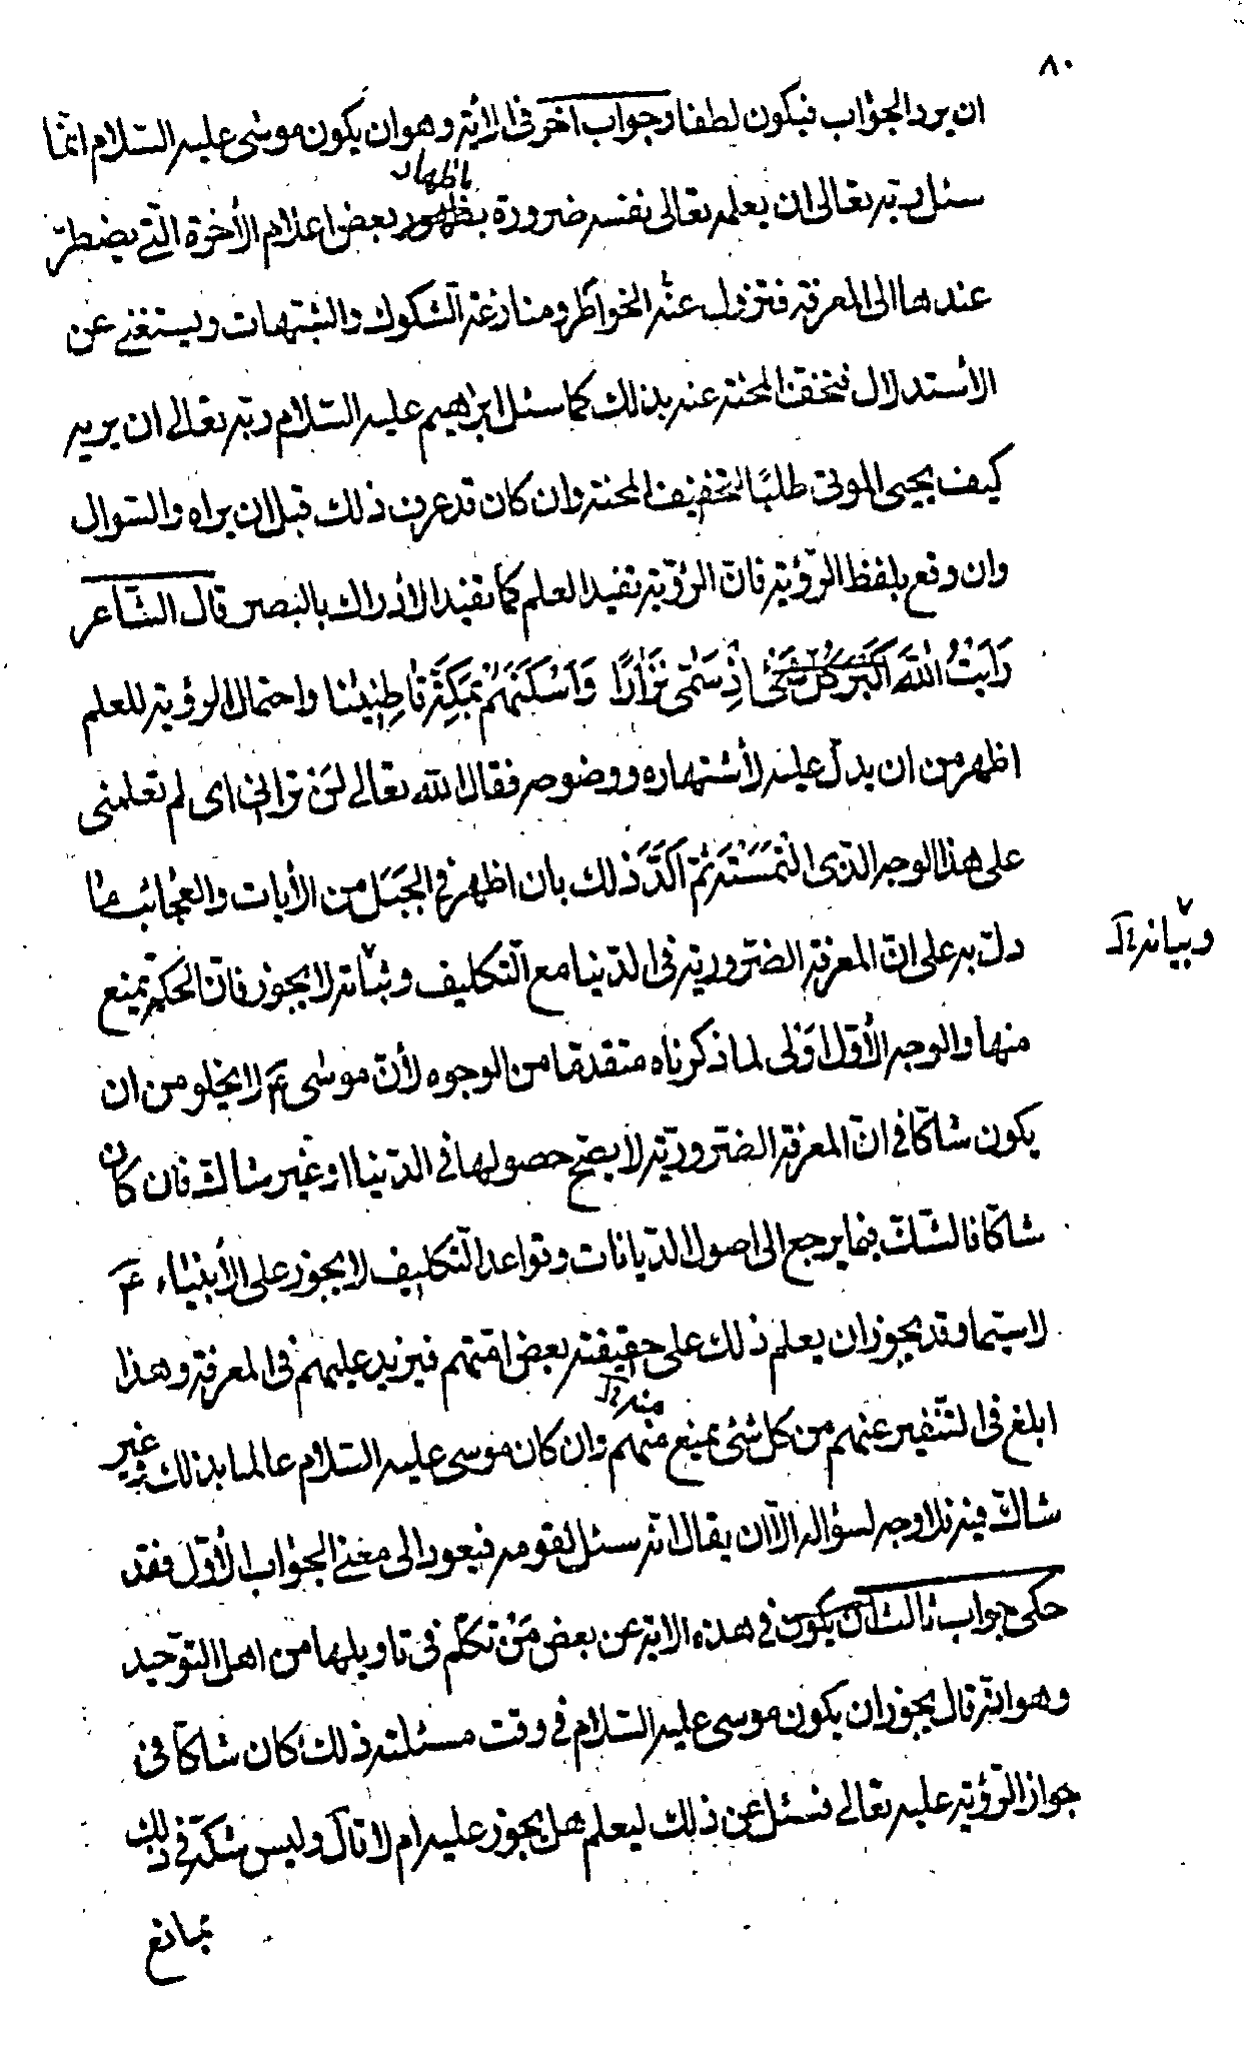 ٨٠
ان يرد الجواب فيكون لطفا وجواب اخر فى الأية وهو ان يكون موسى عليه السّلام انّما
باظهار
سئل ربّه تعالى ان يعلمه تعالى نفسه ضرورة بظهور بعض اعلام الأخرة الّتى يضطرّ
عندها الى المعرفة فتزول عنه الخواطر ومنازعة الشكوك والشبهات ويستغنى عن
الأستدلال فتخفّ المحنة عنه بذلك كما سئل ابراهيم عليه السّلام ربّه تعالى ان يريه
كيف يحيى الموتى طلبًا لتخفيف المحنة وان كان قد عرف ذلك قبل ان يراه والسّؤال
وان وقع بلفظ الرّؤية فانّ الرّؤية تفيد العلم كما تفيد الأدراك بالبصر قال الشّاعر
رَاَيْتُ اللّهَ اَكْبَرَ كُلِّ شَىْءٍ اِذْ سَمّٰى نِزَارًا وَاَسْكَنَهُمْ بِمَكَّةَ قاطِنينا واحتمال الرّؤية للعلم
اظهر من ان يدلّ عليه لأشتهاره ووضوحه فقال اللّه تعالى لَنْ ترانى اى لم تعلمنى
على هذا الوجه الّذى الْتَمَسْتَهُ ثمّ اَكَّدَ ذلك بان اظهر فى الجَبَل من الأيات والعجائب ما
دلّ به على انّ المعرفة الضّروريّة فى الدّنيا مع التّكليف وبيانه لا يجوز فانّ الحكمة تمنع
وبيانه
منها والوجه الأوّل اَوْلى لما ذكرناه متقدما من الوجوه لأنّ موسى ع لا يخلو من ان
يكون شاكّا فى انّ المعرفة الضّروريّة لا يصحّ حصولها فى الدّنيا او غير شاك فان كان
شاكّا فالشّك فيما يرجع الى اصول الدّيانات وقواعد التّكليف لا يجوز على الأنبياء ع
لا سيّما وقد يجوز ان يعلم ذلك على حقيقته بعض امّتهم فيزيد عليهم فى المعرفة وهذا
ابلغ فى التّنفير عنهم من كل شئ يمنع منهم وان كان موسى عليه السّلام عالما بذلك غير
منه
شاكّ فيه فلا وجه لسؤاله الّا ان يقال انّه سئل لقومه فيعود الى معنى الجواب الأوّل فقد
حكى جواب ثالث ان يكون فى هذه الاية عن بعض مَنْ تكلّم فى تاويلها من اهل التّوحيد
وهو انّه قال يجوز ان يكون موسى عليه السّلام فى وقت مسئلته ذلك كان شاكّا فى
جواز الرّؤية عليه تعالى فسئل عن ذلك ليعلم هل يجوز عليه ام لا قال وليس شكّه فى ذلك
بمانع